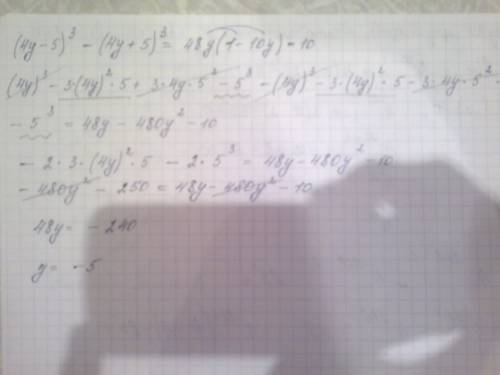 (4y-5)³ - (4y+5)³ = 48y(1-10y) - 10
(4y)³ - 3·(4y)²·5 + 3·4y·5² - 5³ - (4y)³ - 3·(4y)²·5 - 3·4y·5²
- 5³ = 48y - 480y² - 10
- 2·3·(4y)²·5 - 2·5³ = 48y - 480y² - 10
- 480y² - 250 = 48y - 480y² - 10
48y = - 240
y = -5